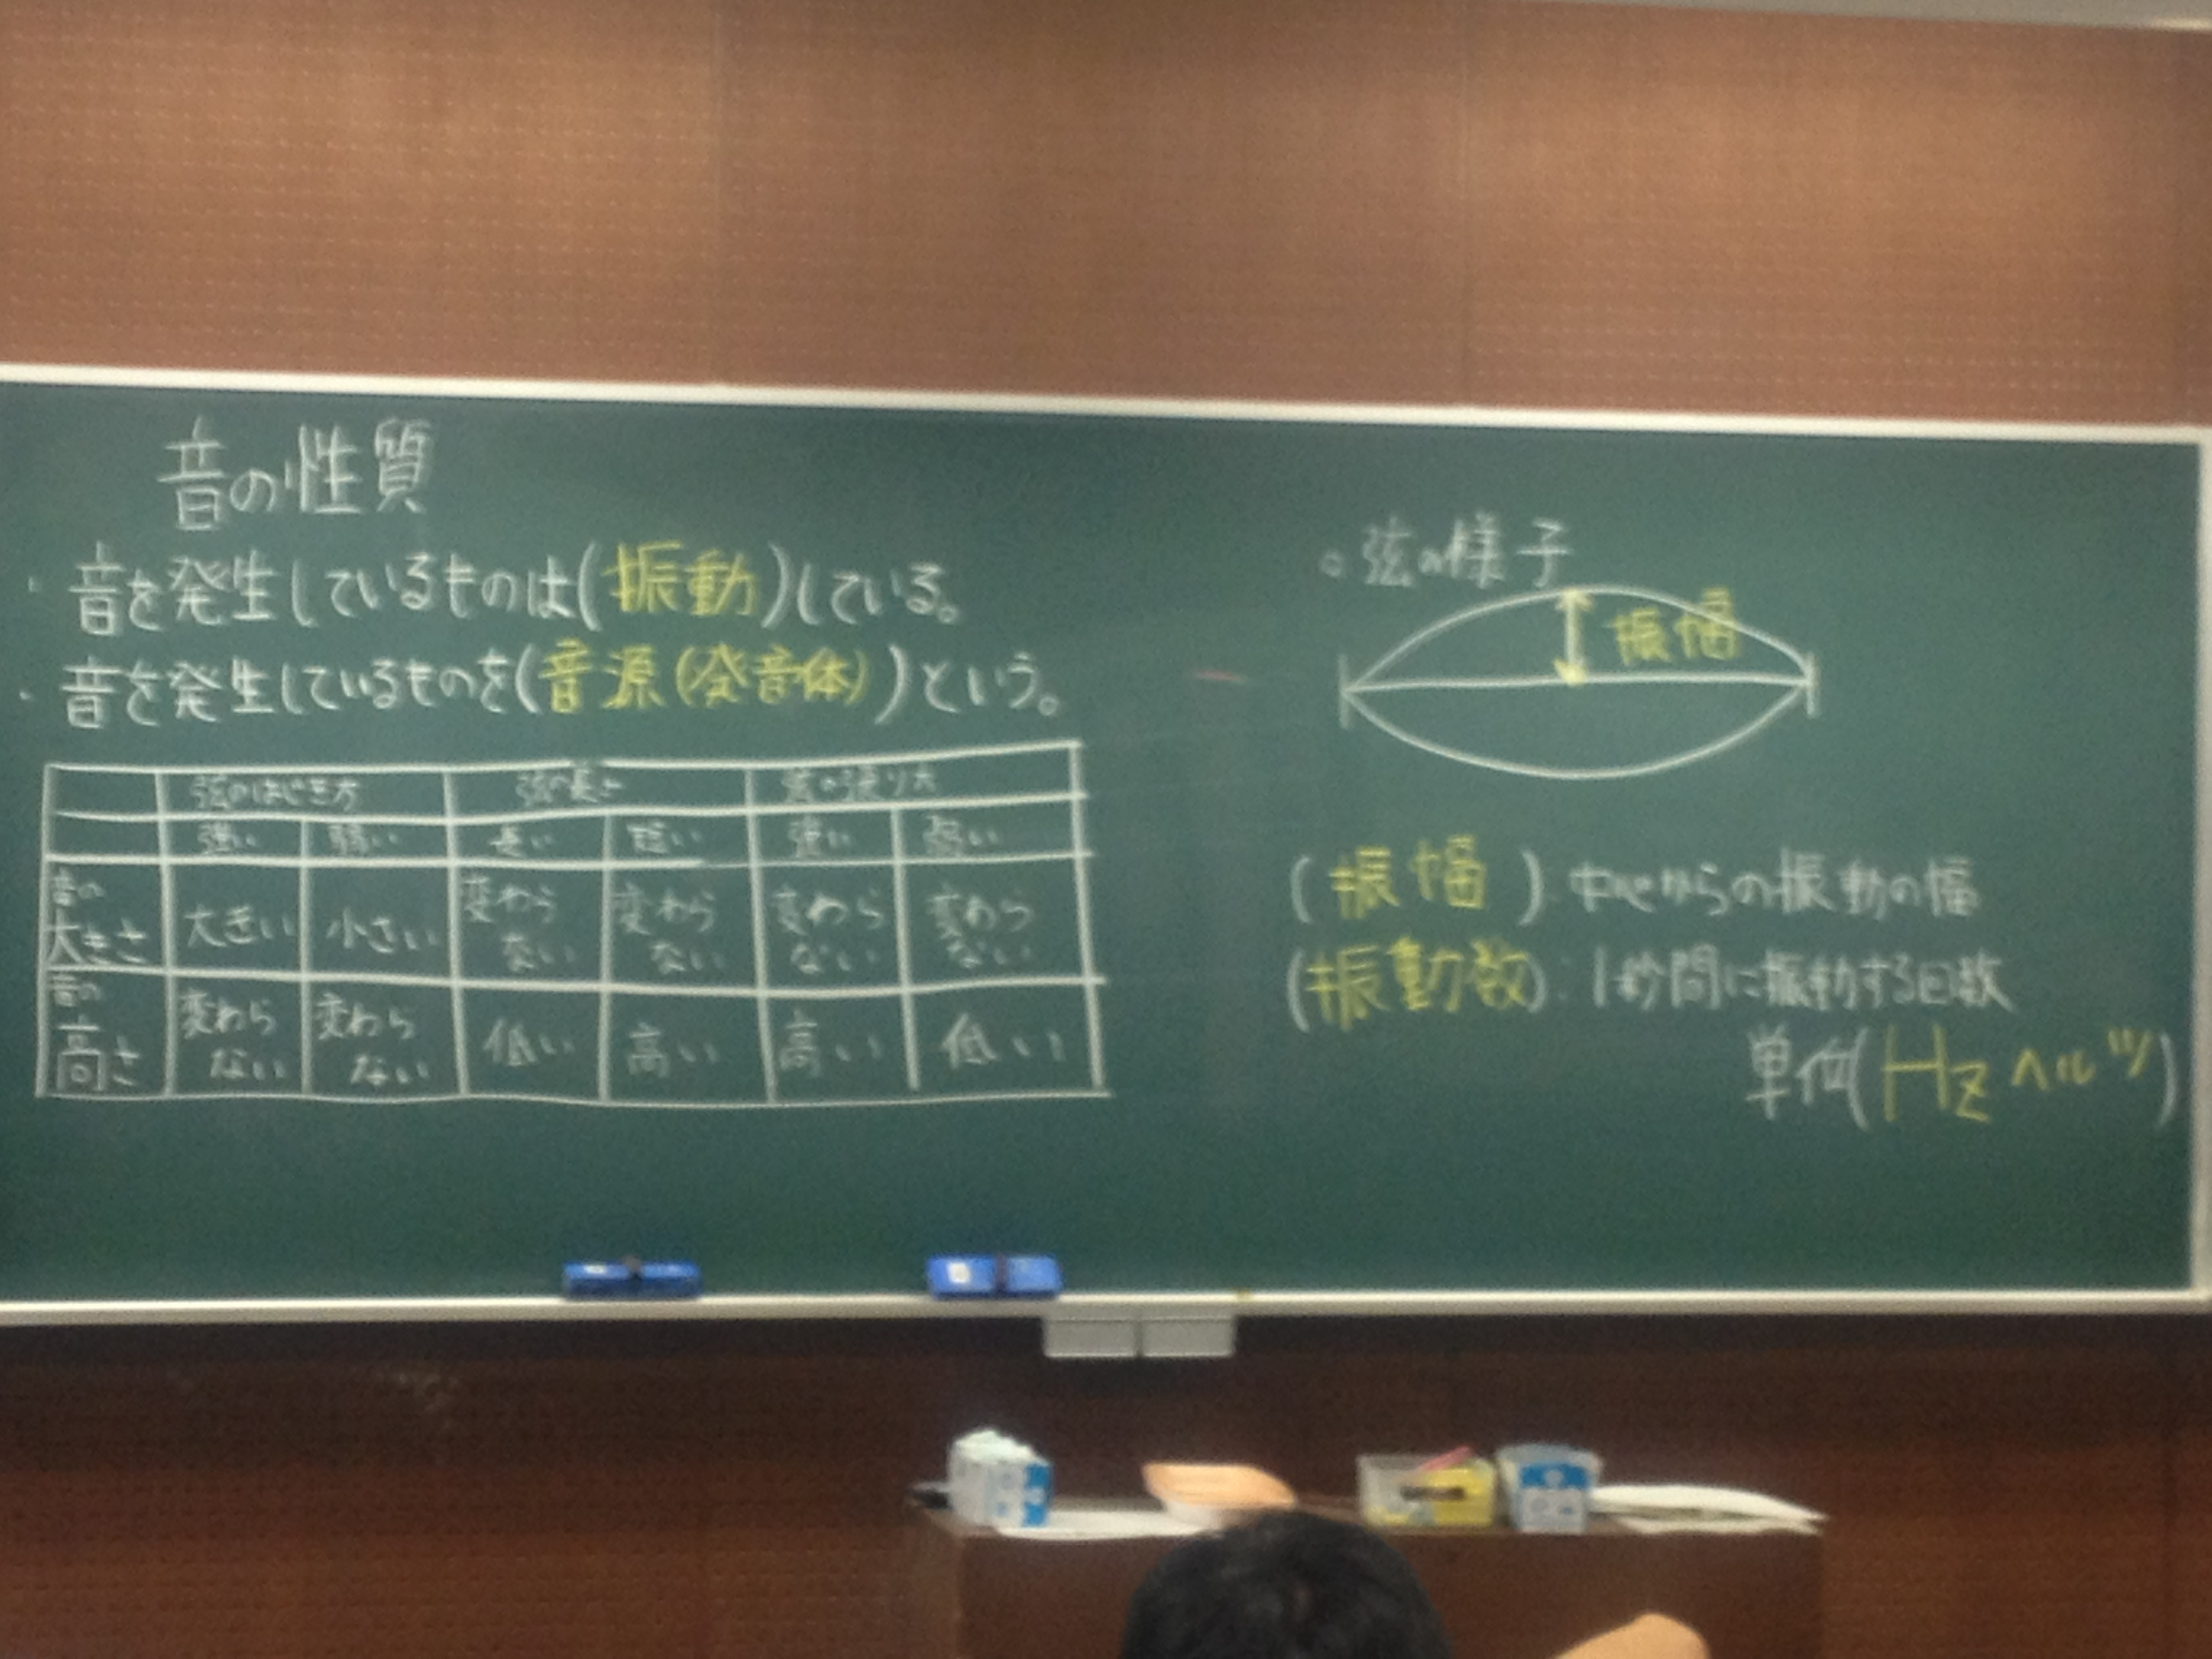 音の性質
・音を発生しているものは(振動)している。
・音を発生しているものを(音源(発音体))という。
弦のはじき方 弦の長さ 弦の張り方
強い 弱い 長い 短い 強い 弱い
音の大きさ 大きい 小さい 変わらない 変わらない 変わらない 変わらない
音の高さ 変わらない 変わらない 低い 高い 高い 低い
○弦の様子
振幅
(振幅):中心からの振動の幅
(振動数):1秒間に振動する回数
単位(Hz ヘルツ)